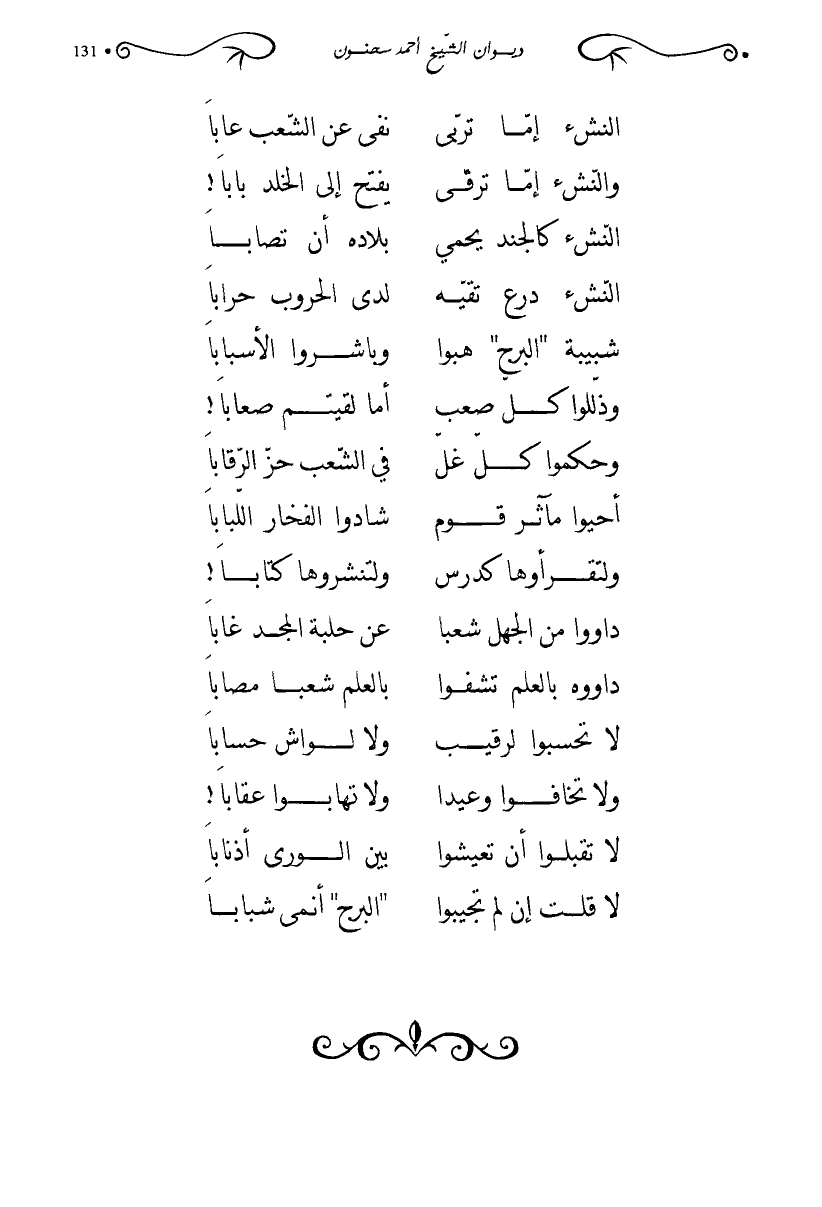 ديـوان الشّيخ أحمد سحنـون • 131
النشء إمّـا تربّى نفى عن الشّعب عاباَ
والنّشء إمّـا ترقّـى يفتح إلى الخلد باباَ!
النّشء كالجند يحمي بلاده أن تصابـاَ
النّشء درع تقيّـه لدى الحروب حراباَ
شبيبة "البرج" هبوا وباشـروا الأسباباَ
وذللوا كـلّ صعبّ أما لقيتـم صعاباَ!
وحكموا كـلّ غلّ في الشّعب حزّ الرّقاباَ
أحيوا مآثـر قـوم شادوا الفخار اللّباباَ
ولتقـرأوها كدرس ولتنشروها كتابـاَ!
داووا من الجهل شعبا عن حلبة المجـد غاباَ
داووه بالعلم تشفـوا بالعلم شعبـا مصاباَ
لا تحسبوا لرقيـب ولا لـواش حساباَ
ولا تخافـوا وعيدا ولا تهابـوا عقاباَ!
لا تقبلـوا أن تعيشوا بين الـورى أذناباَ
لا قلـت إن لم تجيبوا "البرج" أنمى شبابـاَ